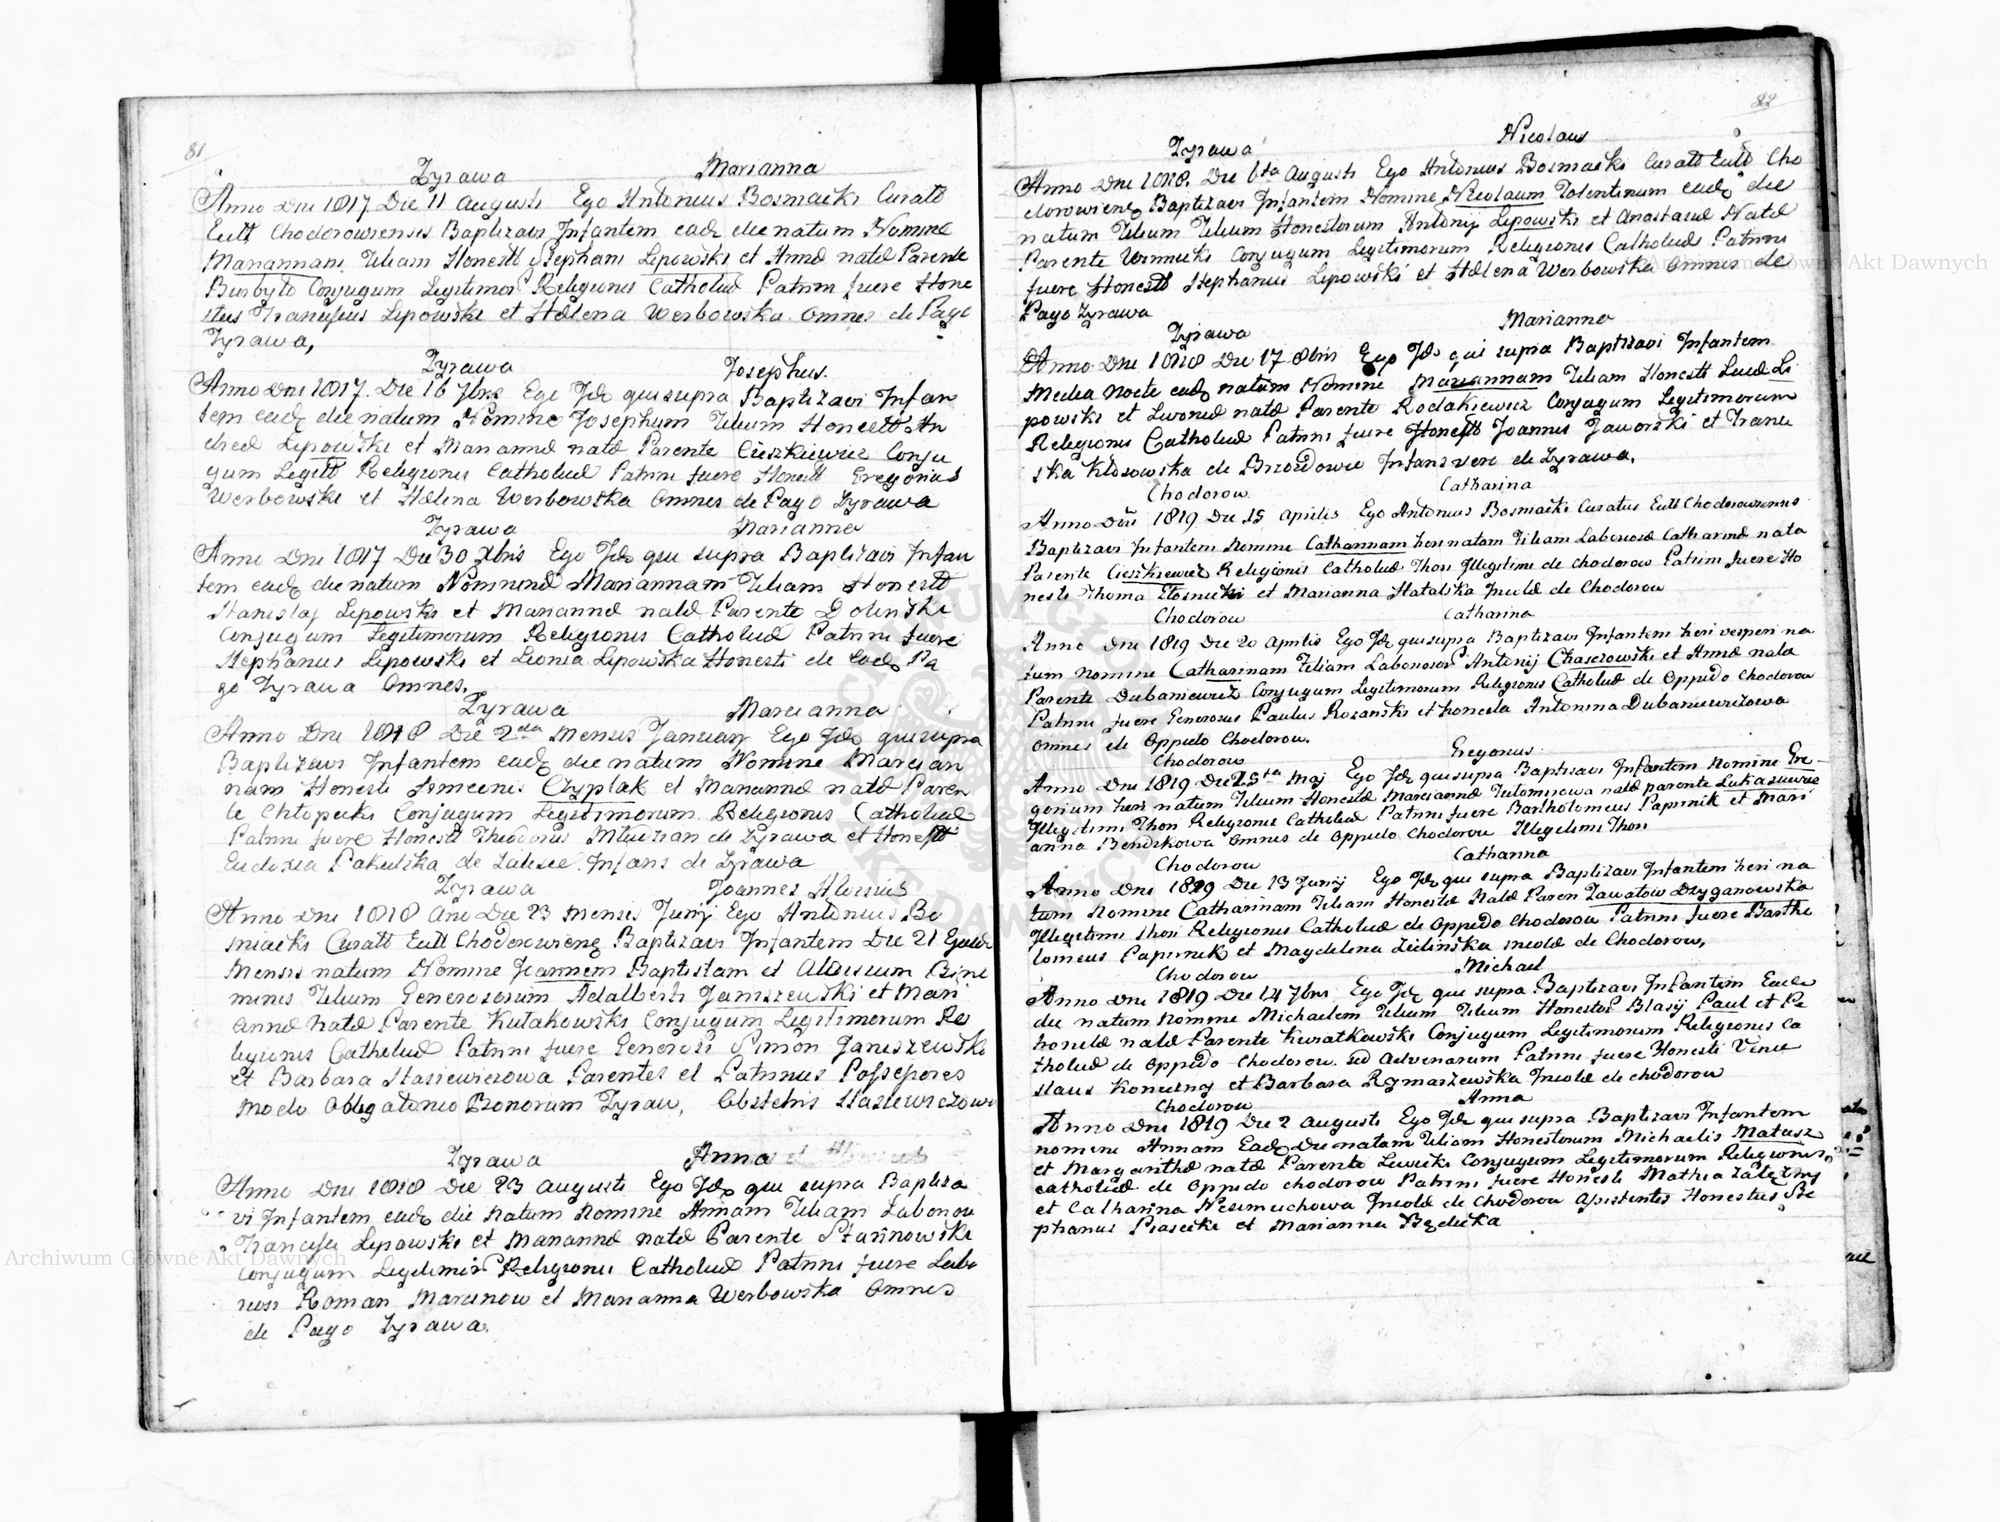 81
Zyrawa Marianna
Anno Dni 1817 Die 11 Augusti Ego Antonius Bosniacki Curatt
Eccll Chodorowiensis Baptizavi Infantem ead die natum Nomine
Mariannam Filiam Honestt Stephani Lipowski et Annæ natæ Parente
Burbyło Conjugum Legitimor Religionis Catholicæ Patrini fuere Hone
stus Franciscus Lipowski et Helena Werbowska Omnes de Pago
Zyrawa,
Zyrawa Josephus.
Anno Dni 1817. Die 16 7bris Ego Id qui supra Baptizavi Infan
tem ead die natum Nomine Josephum Filium Honestt An
dreæ Lipowski et Mariannæ natæ Parente Cieszkiewicz Conju
gum Legitt Religionis Catholicæ Patrini fuere Honestt Gregorius
Werbowski et Helena Werbowska Omnes de Pago Zyrawa
Zyrawa Marianna
Anno Dni 1817 Die 30 Xbris Ego Id qui supra Baptizavi Infan
tem ead die natum Nominæ Mariannam Filiam Honestt
Stanislaj Lipowski et Mariannæ natæ Parente Dolinski
Conjugum Legitimorum Religionis Catholicæ Patrini fuere
Stephanus Lipowski et Leonia Lipowska Honesti de Eod Pa
go Zyrawa Omnes.
Zyrawa Marcianna
Anno Dni 1818 Die 2da Mensis January Ego Id qui supra
Baptizavi Infantem ead die natum Nomine Marcian
nam Honesti Czyplak et Mariannæ natæ Paren
te Chłopecki Conjugum Legitimorum Religionis Catholicæ
Patrini fuere Honestt Theodorus de Zyrawa et Honestt
Eudoxia Pakulska de Zalesce Infans de Zyrawa
Zyrawa Joannes Aloisius
Anno Dni 1818 Die 23 Mensis Junij Ego Antonius Bo
sniacki Curatt Eccll Chodorowieng Baptizavi Infantem Die 21 Ejusd
Mensis natum Nomine Joannem Baptistam et Aloisium Bine
minis Filium Generosorum Adalberti Janiszewski et Mari
annæ Natæ Parente Kułakowski Conjugum Legitimorum Re
ligionis Catholicæ Patrini fuere Generosi Simon Janiszewski
et Barbara Stasiewiczowa Parentes et Patrinus Possesores
Modo Obligatorio Bonorum Zyraw, Obstetris Stasiewiczowa
Zyrawa Anna
Anno Dni 1818 Die 23 Augusti Ego Id qui supra Baptiza
vi Infantem ead die Natum Nomine Annam Filiam Laborio
Francisci Lipowski et Mariannæ natæ Parente Starinowski
Conjugum Legitimor Religionis Catholicæ Patrini fuere Labo
riosi Roman Marcinow et Marianna Werbowska Omnes
de Pago Zyrawa.
82
Zyrawa Nicolaus
Anno Dni 1818. Die 6ta Augusti Ego Antonius Bosniacki Curatt Eccll Cho
dorowieng Baptizavi Infantem Nomine Nicolaum Tolentinum ead die
natum Filium Filium Honestorum Antonij Lipowski et Anastasiæ Natæ
Parente Winnicki Conjugum Legitimorum Religionis Catholicæ Patrini
fuere Honestt Stephanus Lipowski et Helena Werbowska Omnes de
Pago Zyrawa
Zyrawa Marianna
Anno Dni 1818 Die 17 8bris Ego Id qui supra Baptizavi Infantem
Media Nocte ead natam Nomine Mariannam Filiam Honestt Lucæ Li
powski et natæ Parente Rodakiewicz Conjugum Legitimorum
Religionis Catholicæ Patrini fuere Honestt Joannes Jaworski et Franci
ska Kłosowska de Brzozdowce Infans vero de Zyrawa.
Chodorow Catharina
Anno Dni 1819 Die 15 Aprilis Ego Antonius Bosniacki Curatus Eccll Chodorowiensis
Baptizavi Infantem Nomine Catharinam heri natam Filiam Laboriosæ Catharinæ nata
Parente Cieszkiewicz Religionis Catholicæ Thori Illegitimi de Chodorow Patrini fuere Ho
nesti Thoma et Marianna Natalska Incolæ de Chodorow
Chodorow Catharina
Anno Dni 1819 Die 20 Aprilis Ego Id qui supra Baptizavi Infantem heri vesperi na
tum Nomine Catharinam Filiam Laboriosor Antonij Chaserowski et Annæ nata
Parente Dubaniewicz Conjugum Legitimorum Religionis Catholicæ de Oppido Chodorow
Patrini fuere Generosus Paulus Rozanski et honesta Antonina Dubaniewiczowa
Omnes de Oppido Chodorow.
Chodorow Gregorius
Anno Dni 1819 Die 25ta Maj Ego Id qui supra Baptizavi Infantem Nomine Gre
gorium heri natum Filium Honestæ Marciannæ natæ parente Lukasiewicz
Illegitimi Thori Religionis Catholicæ Patrini fuere Bartholomeus Papirnik et Mari
anna Bendzkowa Omnes de Oppido Chodorow Illegitimi Thori
Catharina
Chodorow
Anno Dni 1819 Die 13 Junij Ego Id qui supra Baptizavi Infantem heri na
tam Nomine Catharinam Filiam Honestæ Natæ Paren Dzyganowska
Illegitimi Thori Religionis Catholicæ de Oppido Chodorow Patrini fuere Bartho
lomeus Papirnik et Magdelena Zielinska Incolæ de Chodorow,
Chodorow Michael
Anno Dni 1819 Die 14 7bris Ego Id qui supra Baptizavi Infantem Eade
die natum Nomine Michaelem Filium Filium Honestor Blasij Paul et Pe
tronellæ natæ Parente Kwiatkowski Conjugum Legitimorum Religionis Ca
tholicæ de Oppido Chodorow. sed Advenarum Patrini fuere Honesti Vence
slaus et Barbara Rymaszewska Incolæ de Chodorow
Chodorow Anna
Anno Dni 1819 Die 2 Augusti Ego Id qui supra Baptizavi Infantem
nomine Annam Ead Die natam Filiam Honestorum Michaelis Matusz
et Margarithæ natæ Parente Lewicki Conjugum Legitimorum Religionis
Catholicæ de Oppido Chodorow Patrini fuere Honesti Mathia
et Catharina Incolæ de Chodorow Assistentes Honestus Ste
phanus Piasecki et Marianna
Archiwum Główne Akt Dawnych
Archiwum Główne Akt Dawnych